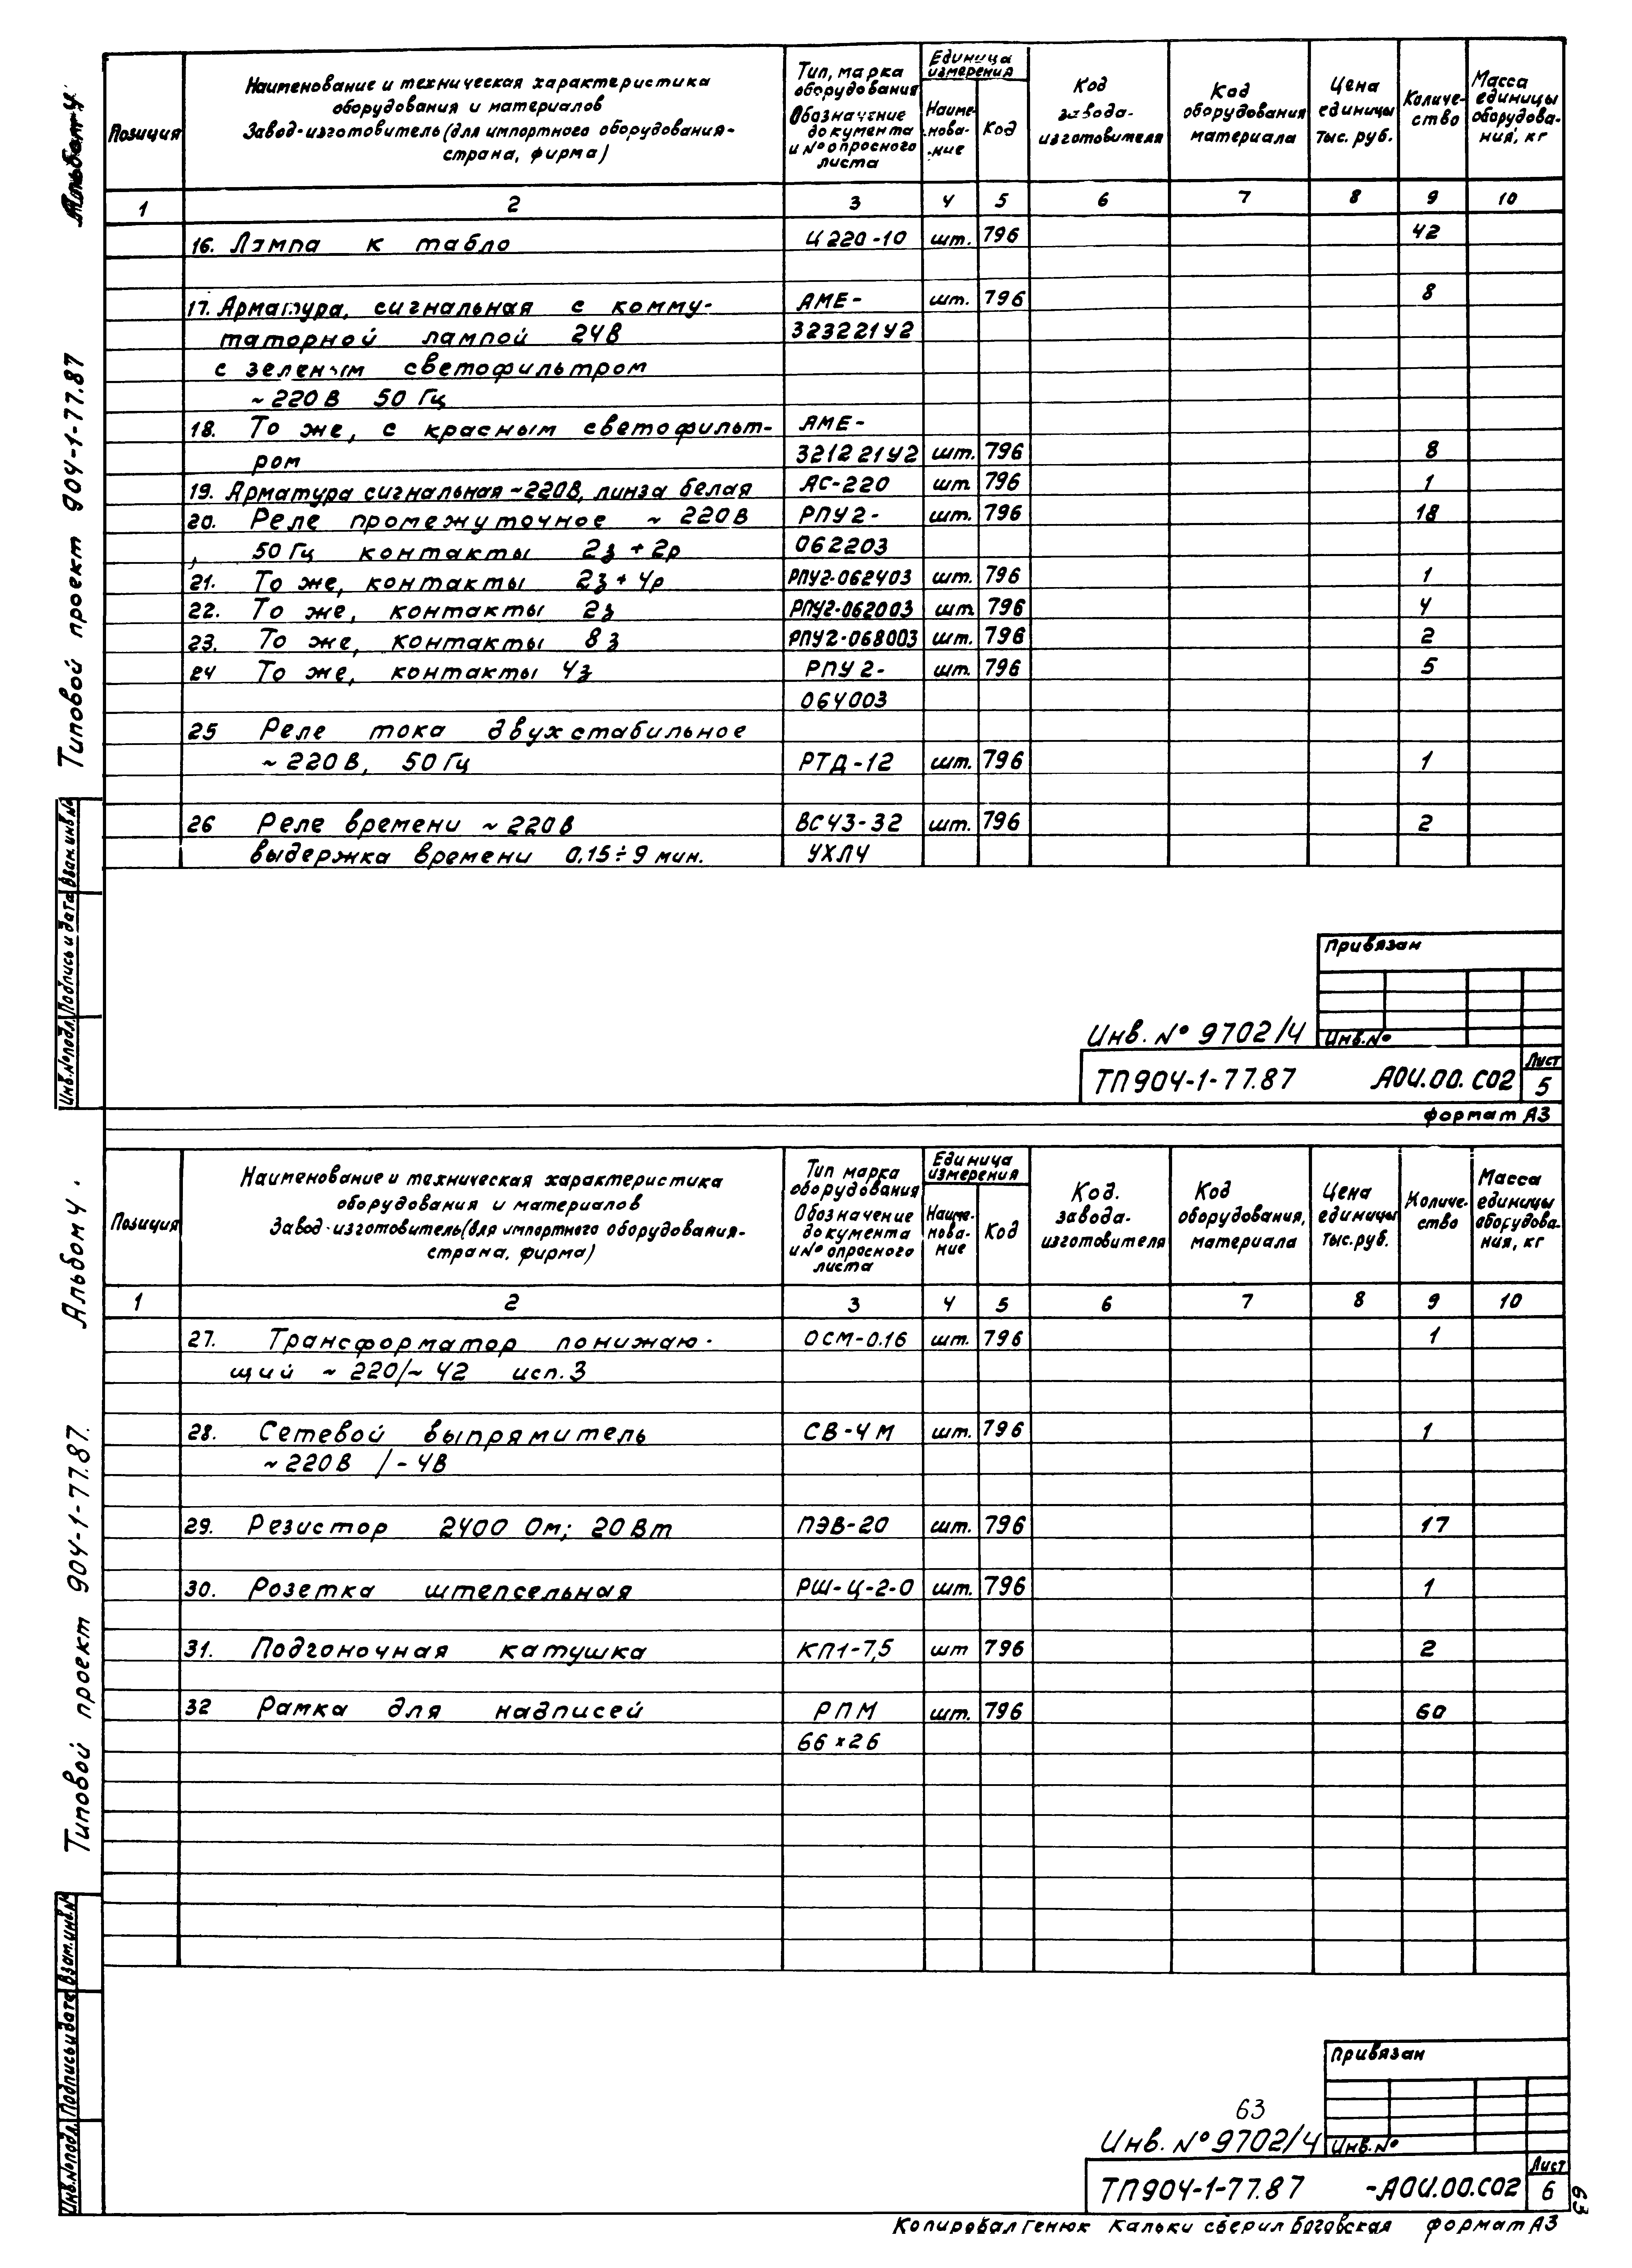 Альбом 4
Типовой проект 904-1-77.87
Позиция
Наименование и техническая характеристика
оборудования и материалов
Завод-изготовитель (для импортного оборудования-
страна, фирма)
Тип, марка
оборудования
Обозначение
документа
и № опросного
листа
Единица
измерения
Наиме-
нова-
ние
Код
Код
завода-
изготовителя
Код
оборудования
материала
Цена
единицы
тыс. руб.
Количе-
ство
Масса
единицы
оборудова-
ния, кг
1 2 3 4 5 6 7 8 9 10
16. Лампа к табло Ц220-10 шт. 796 42
17. Арматура, сигнальная с комму- АМЕ- шт. 796 8
таторной лампой 24В 323221У2
с зеленым светофильтром
~220В 50 Гц
18. То же, с красным светофильт- АМЕ-
ром 321221У2 шт. 796 8
19. Арматура сигнальная ~220В, линза белая АС-220 шт 796 1
20. Реле промежуточное ~ 220В РПУ2- шт. 796 18
50 Гц контакты 2з + 2р 062203
21. То же, контакты 2з + 4р РПУ2-062403 шт. 796 1
22. То же, контакты 2з РПУ2-062003 шт 796 4
23. То же, контакты 8з РПУ2-068003 шт. 796 2
24 То же, контакты 4з РПУ2- шт. 796 5
064003
25 Реле тока двухстабильное
~ 220В, 50 Гц РТД-12 шт. 796 1
26 Реле времени ~ 220В ВС43-32 шт. 796 2
выдержка времени 0,15÷9 мин. УХЛ4
Взам.инв.№
Подпись и дата
Инв.№подл.
Привязан
Инв. № 9702/4
Инв.№
ТП904-1-77.87 АОИ.00.СО2
Лист
5
формат А3
Альбом 4.
Типовой проект 904-1-77.87.
Позиция
Наименование и техническая характеристика
оборудования и материалов
Завод-изготовитель (для импортного оборудования-
страна, фирма)
Тип марка
оборудования
Обозначение
документа
и № опросного
листа
Единица
измерения
Наиме-
нова-
ние
Код
Код.
завода-
изготовителя
Код
оборудования,
материала
Цена
единицы
тыс.руб.
Количе-
ство
Масса
единицы
оборудова-
ния, кг
1 2 3 4 5 6 7 8 9 10
27. Трансформатор понижаю- ОСМ-0.16 шт. 796 1
щий ~ 220/~ 42 исп.3
28. Сетевой выпрямитель СВ-4М шт. 796 1
~ 220В /- 4В
29. Резистор 2400 Ом; 20Вт ПЭВ-20 шт. 796 17
30. Розетка штепсельная РШ-Ц-2-0 шт. 796 1
31. Подгоночная катушка КП1-7,5 шт 796 2
32 Рамка для надписей РПМ шт. 796 60
66×26
Взам.инв.№
Подпись и дата
Инв.№подл.
Привязан
63
Инв. № 9702/4
Инв.№
ТП904-1-77.87 -АОИ.00.СО2
Лист
6
63
Копировал Генюк Кальки сверил Боговская формат А3